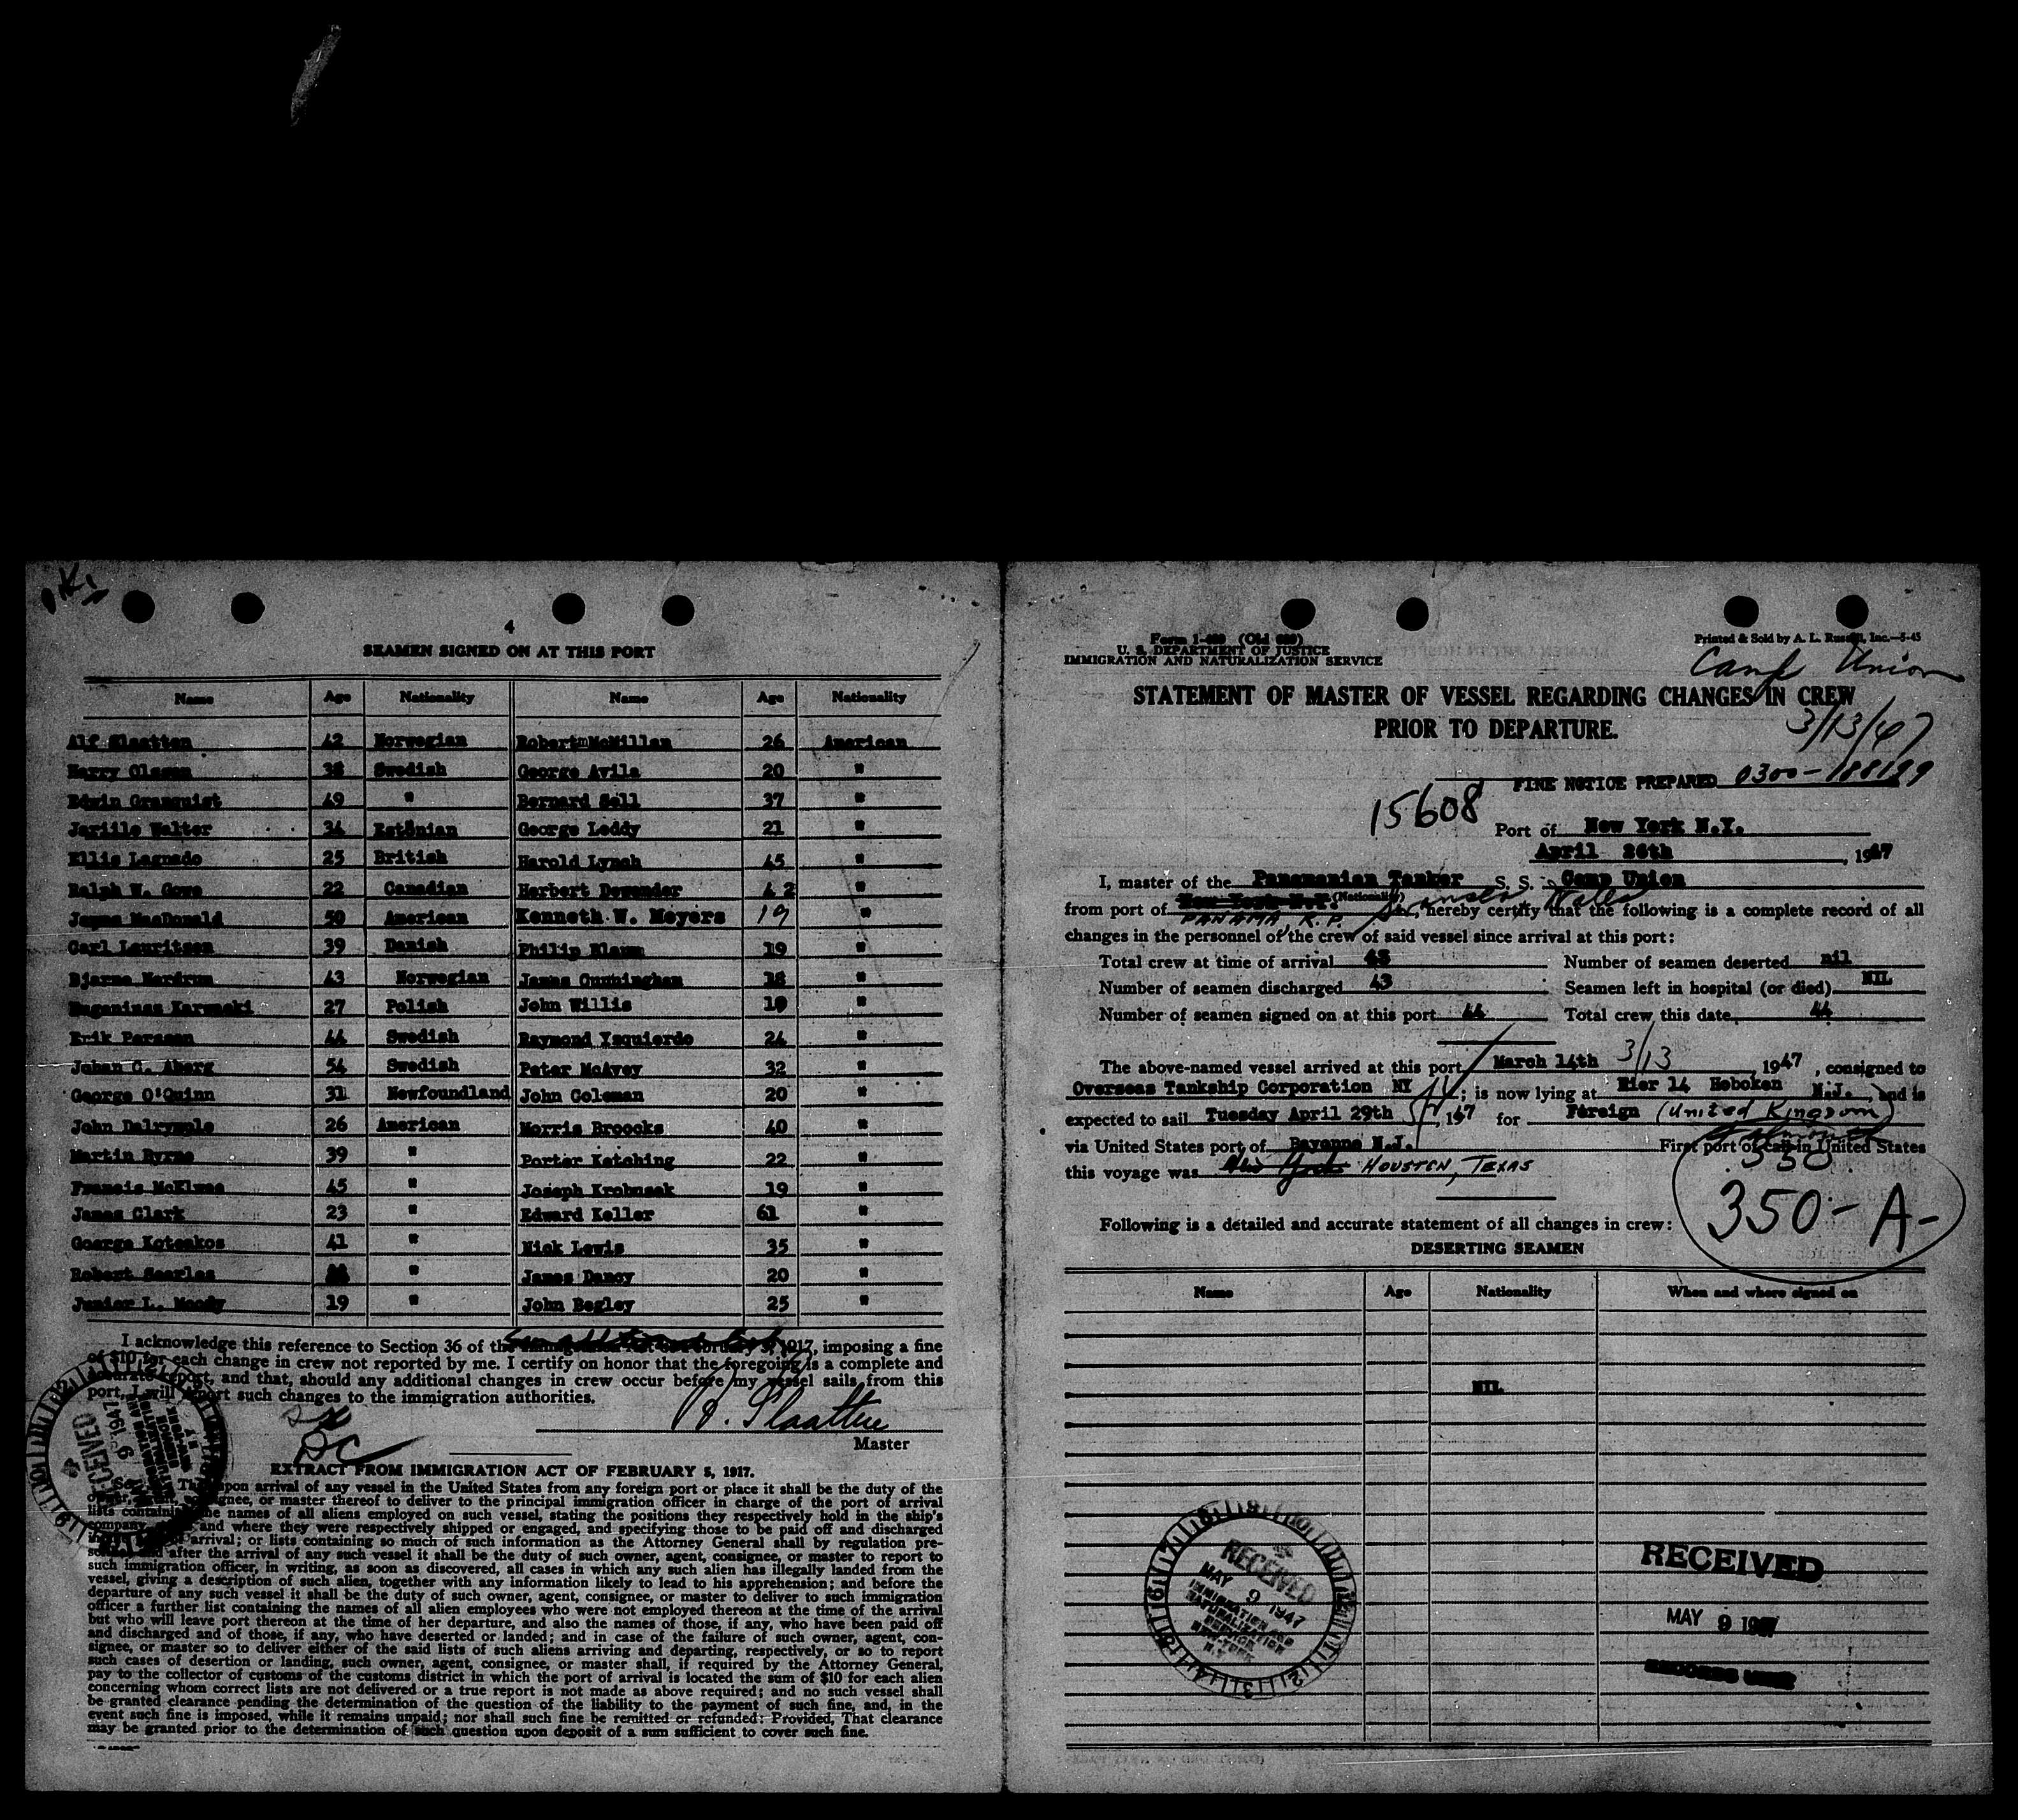 OK!
4
SEAMEN SIGNED ON AT THIS PORT
Name Age Nationality Name Age Nationality
Alf Slaatten 42 Norwegian Robert McMillan 26 American
Harry Olsson 38 Swedish George Avila 20 "
Edwin Granquist 49 " Bernard Sell 37 "
Walter 34 Estonian George Leddy 21 "
Ellis Lagnado 25 British Harold Lynch 45 "
Ralph W. Gowe 22 Canadian Herbert 42 "
James MacDonald 50 American Kenneth W. Meyers 19 "
Carl Lauritsen 39 Danish Philip 19 "
Bjarne Nordrum 43 Norwegian James Cunningham 18 "
27 Polish John Willis 19 "
Erik Persson 44 Swedish Raymond Ysquierdo 24 "
Johan C. Aberg 54 Swedish Peter McAvey 32 "
George O'Quinn 31 Newfoundland John Coleman 20 "
John Dalrymple 26 American Morris Broocks 40 "
Martin Byrne 39 " Porter Ketching 22 "
Francis 45 " Joseph 19 "
James Clark 23 " Edward Keller 61 "
Goerge Koteakos 41 " Nick Lewis 35 "
Robert Searles " James Dancy 20 "
Junior L. Moody 19 " John Begley 25 "
I acknowledge this reference to Section 36 of the Immigration Act of February 5, 1917, imposing a fine
of $10 for each change in crew not reported by me. I certify on honor that the foregoing is a complete and
accurate report, and that, should any additional changes in crew occur before my vessel sails from this
port, I will report such changes to the immigration authorities.
A. Slaatten
Master
EXTRACT FROM IMMIGRATION ACT OF FEBRUARY 5, 1917.
upon arrival of any vessel in the United States from any foreign port or place it shall be the duty of the
owner, agent, consignee, or master thereof to deliver to the principal immigration officer in charge of the port of arrival
lists containing the names of all aliens employed on such vessel, stating the positions they respectively hold in the ship's
company, when and where they were respectively shipped or engaged, and specifying those to be paid off and discharged
in the port of arrival; or lists containing so much of such information as the Attorney General shall by regulation pre-
scribe; and after the arrival of any such vessel it shall be the duty of such owner, agent, consignee, or master to report to
such immigration officer, in writing, as soon as discovered, all cases in which any such alien has illegally landed from the
vessel, giving a description of such alien, together with any information likely to lead to his apprehension; and before the
departure of any such vessel it shall be the duty of such owner, agent, consignee, or master to deliver to such immigration
officer a further list containing the names of all alien employees who were not employed thereon at the time of the arrival
but who will leave port thereon at the time of her departure, and also the names of those, if any, who have been paid off
and discharged and of those, if any, who have deserted or landed; and in case of the failure of such owner, agent, con-
signee, or master so to deliver either of the said lists of such aliens arriving and departing, respectively, or so to report
such cases of desertion or landing, such owner, agent, consignee, or master shall, if required by the Attorney General,
pay to the collector of customs of the customs district in which the port of arrival is located the sum of $10 for each alien
concerning whom correct lists are not delivered or a true report is not made as above required; and no such vessel shall
be granted clearance pending the determination of the question of the liability to the payment of such fine, and, in the
event such fine is imposed, while it remains unpaid; nor shall such fine be remitted or refunded: Provided, That clearance
may be granted prior to the determination of such question upon deposit of a sum sufficient to cover such fine.
Form I-489 (Old 689)
U. S. DEPARTMENT OF JUSTICE
IMMIGRATION AND NATURALIZATION SERVICE
Printed & Sold by A. L. Russell, Inc.—5-45
Camp Union
STATEMENT OF MASTER OF VESSEL REGARDING CHANGES IN CREW
PRIOR TO DEPARTURE.
3/13/47
FINE NOTICE PREPARED 0300-188199
15608
Port of New York N.Y.
April 26th, 1947
I, master of the Panamanian Tanker S. S. Camp Union
(Nationality)
from port of New York N.Y. PANAMA, R.P., hereby certify that the following is a complete record of all
changes in the personnel of the crew of said vessel since arrival at this port:
Total crew at time of arrival 43 Number of seamen deserted nil
Number of seamen discharged 43 Seamen left in hospital (or died) NIL
Number of seamen signed on at this port 44 Total crew this date 44
The above-named vessel arrived at this port March 14th 3/13, 1947, consigned to
Overseas Tankship Corporation NY; is now lying at Pier 14 Hoboken N.J., and is
expected to sail Tuesday April 29th, 1947 for Foreign (United Kingdom)
via United States port of Bayonne N.J. First port of call in United States
this voyage was New York HOUSTON, TEXAS
350
350-A-
Following is a detailed and accurate statement of all changes in crew:
DESERTING SEAMEN
Name Age Nationality When and where signed on
NIL
RECEIVED
MAY 9 1947
IMMIGRATION AND
NATURALIZATION
SERVICE
NEW YORK
N.Y.
RECEIVED
MAY 9 1947
RECORDS UNIT